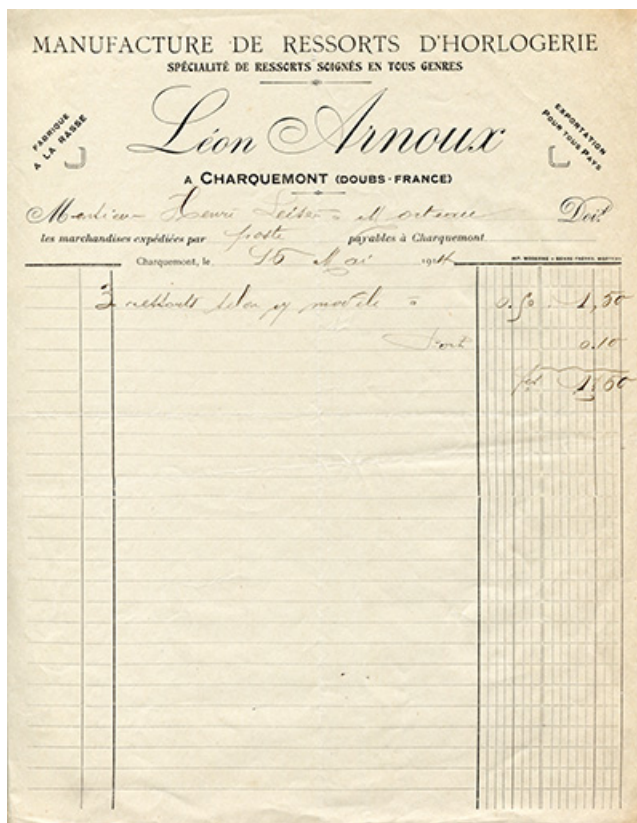 MANUFACTURE DE RESSORTS D'HORLOGERIE
SPÉCIALITÉ DE RESSORTS SOIGNÉS EN TOUS GENRES
FABRIQUE
A LA RASSE
Léon Arnoux
EXPORTATION
POUR TOUS PAYS
A CHARQUEMONT (DOUBS-FRANCE)
Monsieur Henri à Morteau Doit
les marchandises expédiées par poste payables à Charquemont
Charquemont, le 15 Mai 1914
3 ressorts selon modèle à 0.50 1,50
Port 0.10
1,60